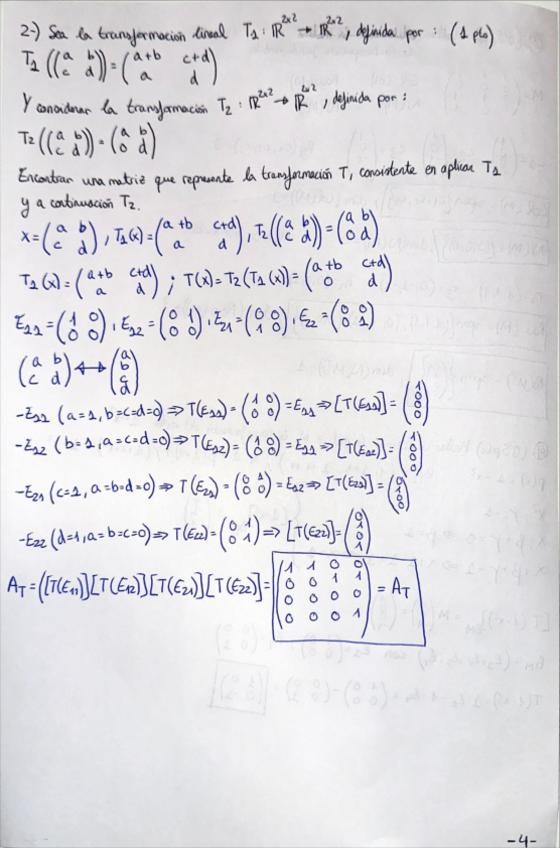 2-) Sea la transformación lineal T₁ : ℝ²ˣ² → ℝ²ˣ², definida por : (1 pto)
T₁ ((a b; c d)) = (a+b c+d; a d)
Y considerar la transformación T₂ : ℝ²ˣ² → ℝ²ˣ², definida por :
T₂ ((a b; c d)) = (a b; 0 d)
Encontrar una matriz que represente la transformación T, consistente en aplicar T₁
y a continuación T₂.
x = (a b; c d), T₁(x) = (a+b c+d; a d), T₂ ((a b; c d)) = (a b; 0 d)
T₁(x) = (a+b c+d; a d) ; T(x) = T₂(T₁(x)) = (a+b c+d; 0 d)
E₁₁ = (1 0; 0 0), E₁₂ = (0 1; 0 0), E₂₁ = (0 0; 1 0), E₂₂ = (0 0; 0 1)
(a b; c d) ↔ (a; b; c; d)
-E₁₁ (a=1, b=c=d=0) ⇒ T(E₁₁) = (1 0; 0 0) = E₁₁ ⇒ [T(E₁₁)] = (1; 0; 0; 0)
-E₁₂ (b=1, a=c=d=0) ⇒ T(E₁₂) = (1 0; 0 0) = E₁₁ ⇒ [T(E₁₂)] = (1; 0; 0; 0)
-E₂₁ (c=1, a=b=d=0) ⇒ T(E₂₁) = (0 1; 0 0) = E₁₂ ⇒ [T(E₂₁)] = (0; 1; 0; 0)
-E₂₂ (d=1, a=b=c=0) ⇒ T(E₂₂) = (0 1; 0 1) ⇒ [T(E₂₂)] = (0; 1; 0; 1)
A_T = ([T(E₁₁)] [T(E₁₂)] [T(E₂₁)] [T(E₂₂)] = (1 1 0 0; 0 0 1 1; 0 0 0 0; 0 0 0 1) = A_T
-4-